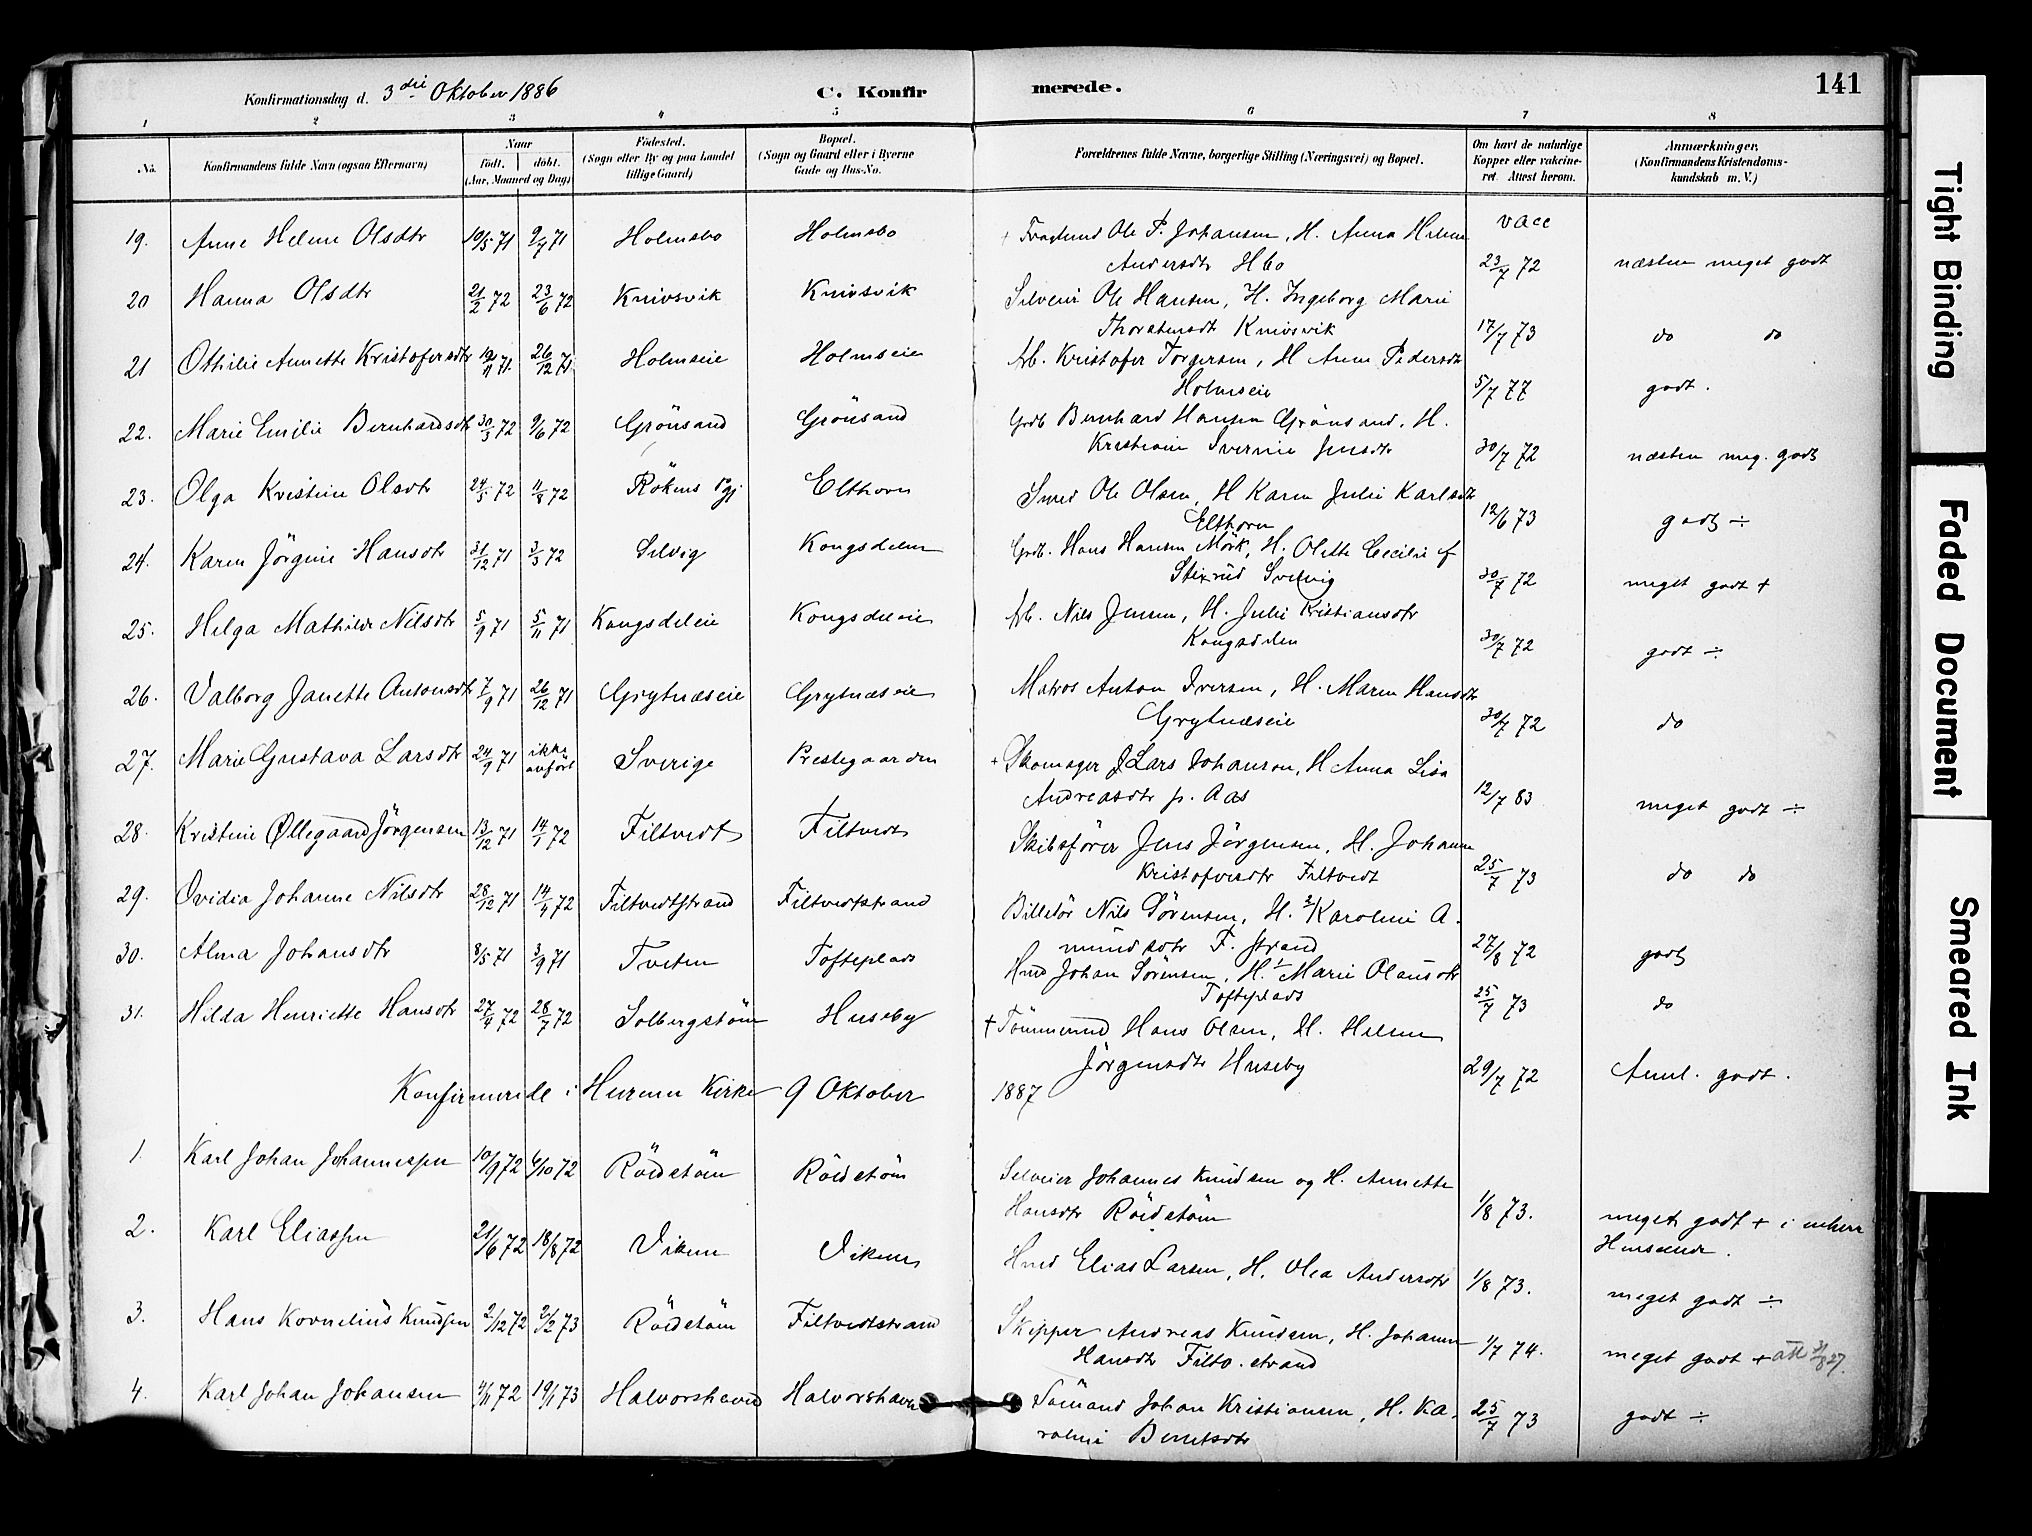 Konfirmationsdag d. 3die Oktober 1886 C. Konfirmerede. 141
1 2 3 4 5 6 7 8
No. Konfirmandens fulde Navn (ogsaa Efternavn) Naar födt. döbt. (Aar, Maaned og Dag) Födested. (Sogn eller By og paa Landet tillige Gaard) Bopæl. (Sogn og Gaard eller i Byerne Gade og Hus-No. Forældrenes fulde Navne, borgerlige Stilling (Næringsvei) og Bopæl. Om havt de naturlige Kopper eller vakcineret. Attest herom. Anmærkninger. (Konfirmandens Kristendomskundskab m. V.)
19. Anne Helene Olsdtr 10/5 71 9/7 71 Holmsbo Holmsbo + Ole P. Johansen, H. Anna Helene vacc
Andersdtr Hbo 23/7 72 næsten meget godt
20 Hanna Olsdtr 21/2 72 23/6 72 Knivsvik Knivsvik Selveier Ole Hansen, H. Ingeborg Marie
Thorstensdtr Knivsvik 17/7 73 do do
21 Othilie Annette Kristofersdtr 26/12 71 Holmseie Holmseie Arb. Kristofer Torgersen, H Anne Pedersdtr
Holmseie 5/7 77 godt.
22. Marie Emilie Bernhardsdtr 30/3 72 9/6 72 Grönsand Grönsand Grdb Bernhard Hansen Grönsand, H.
Kristiane Jensdtr 30/7 72 næsten meg. godt
23. Olga Kristine Olsdtr 24/5 72 11/8 72 Rökens Pgj Elthorn Smed Ole Olsen, H Karen Julie Karlsdtr
Elthorn 12/6 73 godt ÷
24. Karen Jörgine Hansdtr 31/12 71 3/3 72 Selvig Kongsdelen Grdb. Hans Hansen Mörk, H. Olette Cecilie f
Stixrud 30/7 72 meget godt +
25. Helga Mathilde Nilsdtr 5/9 71 5/11 71 Kongsdeleie Kongsdeleie Arb. Nils Jensen, H. Julie Kristiansdtr
Kongsdelen 30/7 72 godt ÷
26. Valborg Janette Antonsdtr 7/9 71 26/12 71 Grytnæseie Grytnæseie Matros Anton Iversen, H. Maren Hansdtr
Grytnæseie 30/7 72 do
27. Marie Gustava Larsdtr 24/9 71 ikke anfört Sverige Prestegaarden + Skomager J Lars Johanson, H Anna Lisa
Andreasdtr p. Aas 12/7 83 meget godt ÷
28. Kristine Øllegaard Jörgensen 13/12 71 14/1 72 Filtvedt Filtvedt Skibsförer Jens Jörgensen, H. Johanne
Kristofersdtr Filtvedt 25/7 73 do do
29. Ovidia Johanne Nilsdtr 28/12 71 14/4 72 Filtvedtstrand Filtvedtstrand Billetör Nils Sörensen, H. Karoline A-
mundsdtr F. strand 27/8 72 godt
30. Alma Johansdtr 8/5 71 3/9 71 Tveten Tofteplads Hmd Johan Sörensen, H. Marie Olausdtr
Tofteplads 25/7 73 do
31. Hilda Henriette Hansdtr 27/4 72 28/7 72 Solbergström Huseby + Tömmermd Hans Olsen, H. Helene
Jörgensdtr Huseby 29/7 72 Anml. godt.
Konfirmerede i Hurum Kirke 9 Oktober 1887
1. Karl Johan Johannessen 10/9 72 6/10 72 Röidstöm Röidstöm Selveier Johannes Knudsen og H. Annette
Hansdtr Röidstöm 1/8 73. meget godt + i enhver
Henseende.
2. Karl Eliassen 21/6 72 18/8 72 Viken Viken Hmd Elias Larsen, H. Olea Andersdtr 1/8 73. meget godt ÷
3. Hans Kornelius Knudsen 2/12 72 2/2 73 Röidstöm Filtvedtstrand Skipper Andreas Knudsen, H. Johanne
Hansdtr Filtv. strand 1/7 74. meget godt + att 27.
4. Karl Johan Johansen 4/11 72 19/1 73 Halvorshavn Halvorshavn Sömand Johan Kristiansen, H. Ka-
roline Berntsdtr 25/7 73 godt ÷
Tight Binding
Faded Document
Smeared Ink